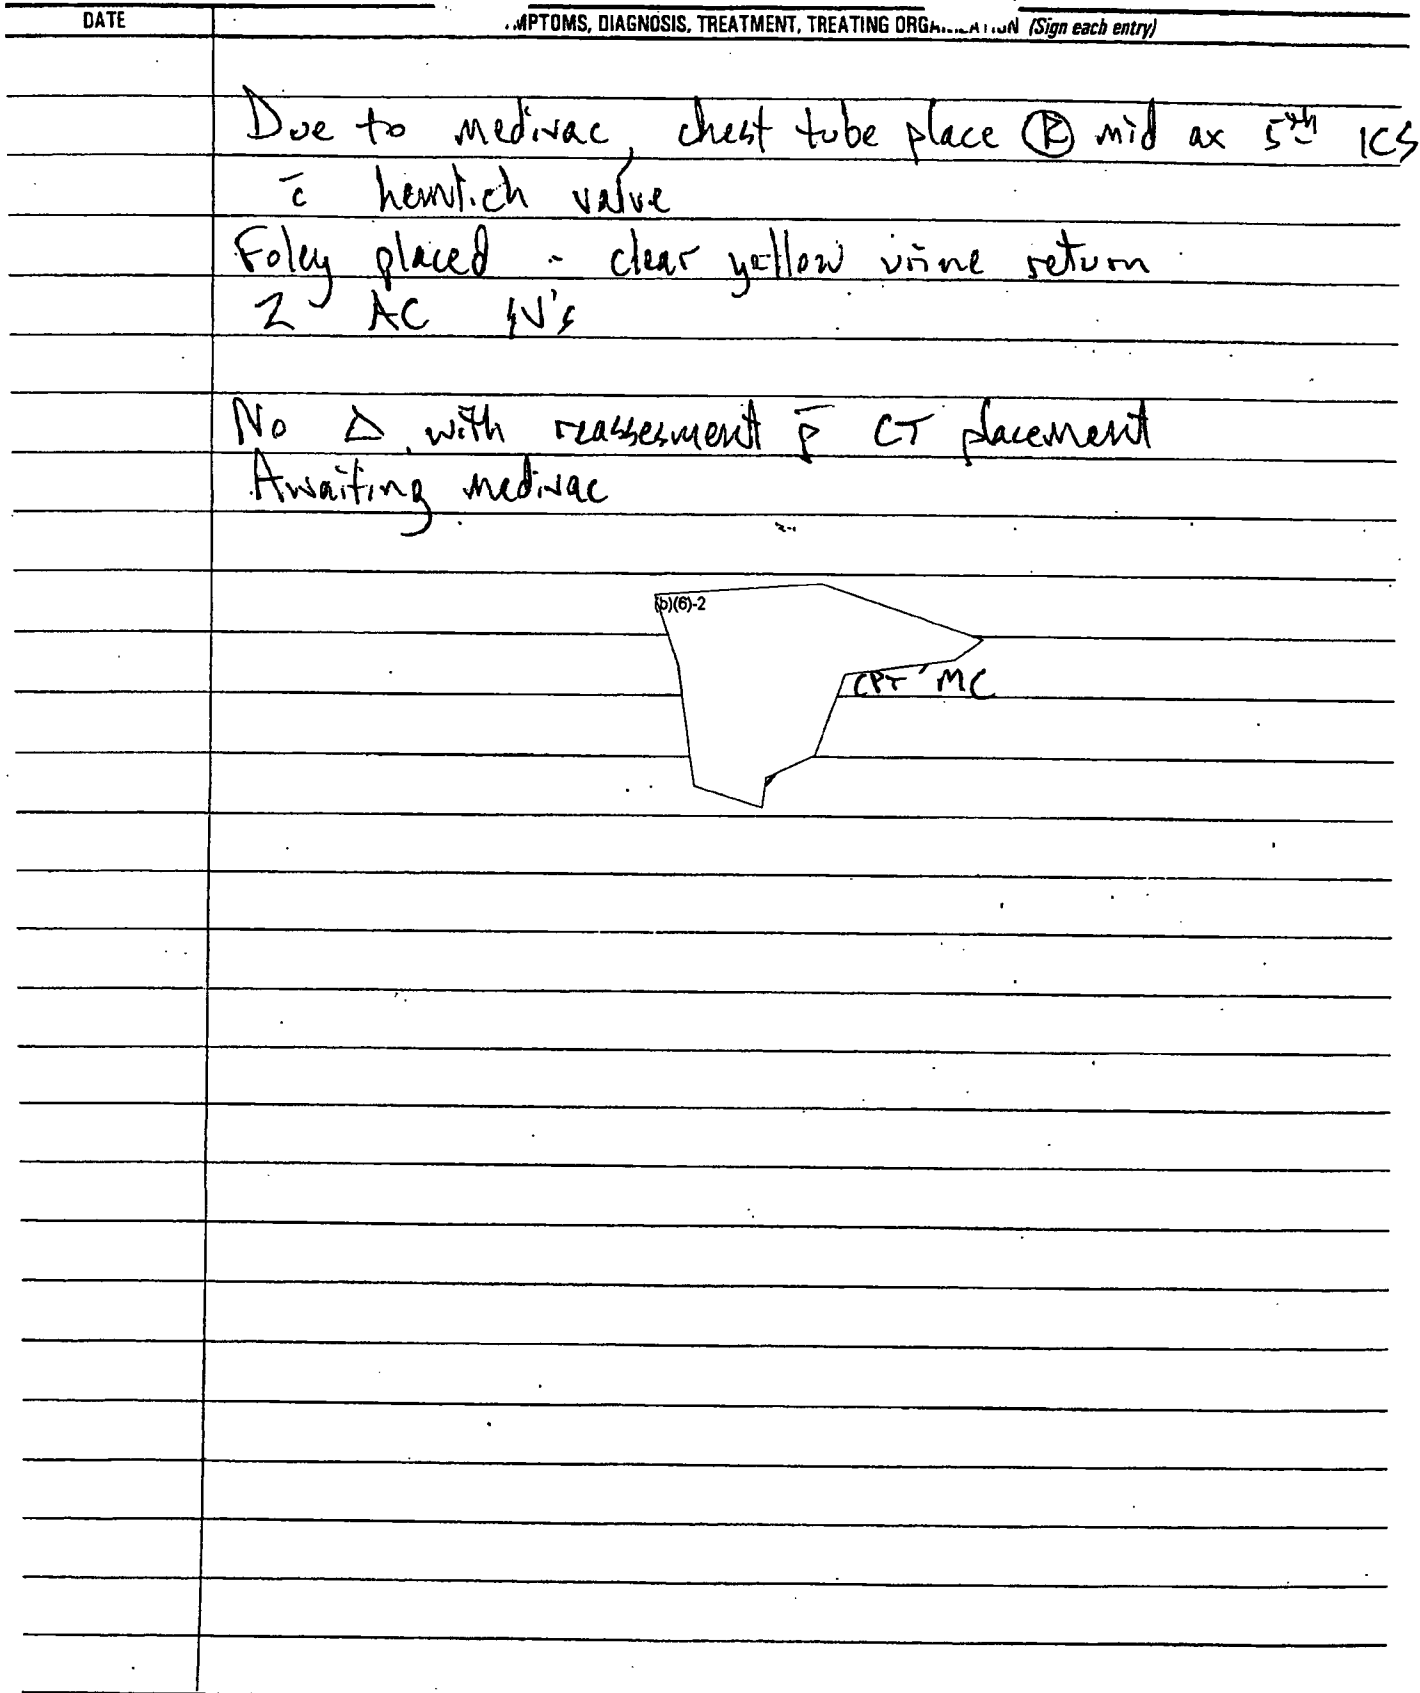 DATE
MPTOMS, DIAGNOSIS, TREATMENT, TREATING ORGANIZATION (Sign each entry)
Due to medivac, chest tube place Ⓡ mid ax 5th ICS
c̄ hemlich valve
Foley placed - clear yellow urine return
2 AC IV's
No Δ with reassesment p̄ CT placement
Awaiting medivac
(b)(6)-2
CPT MC